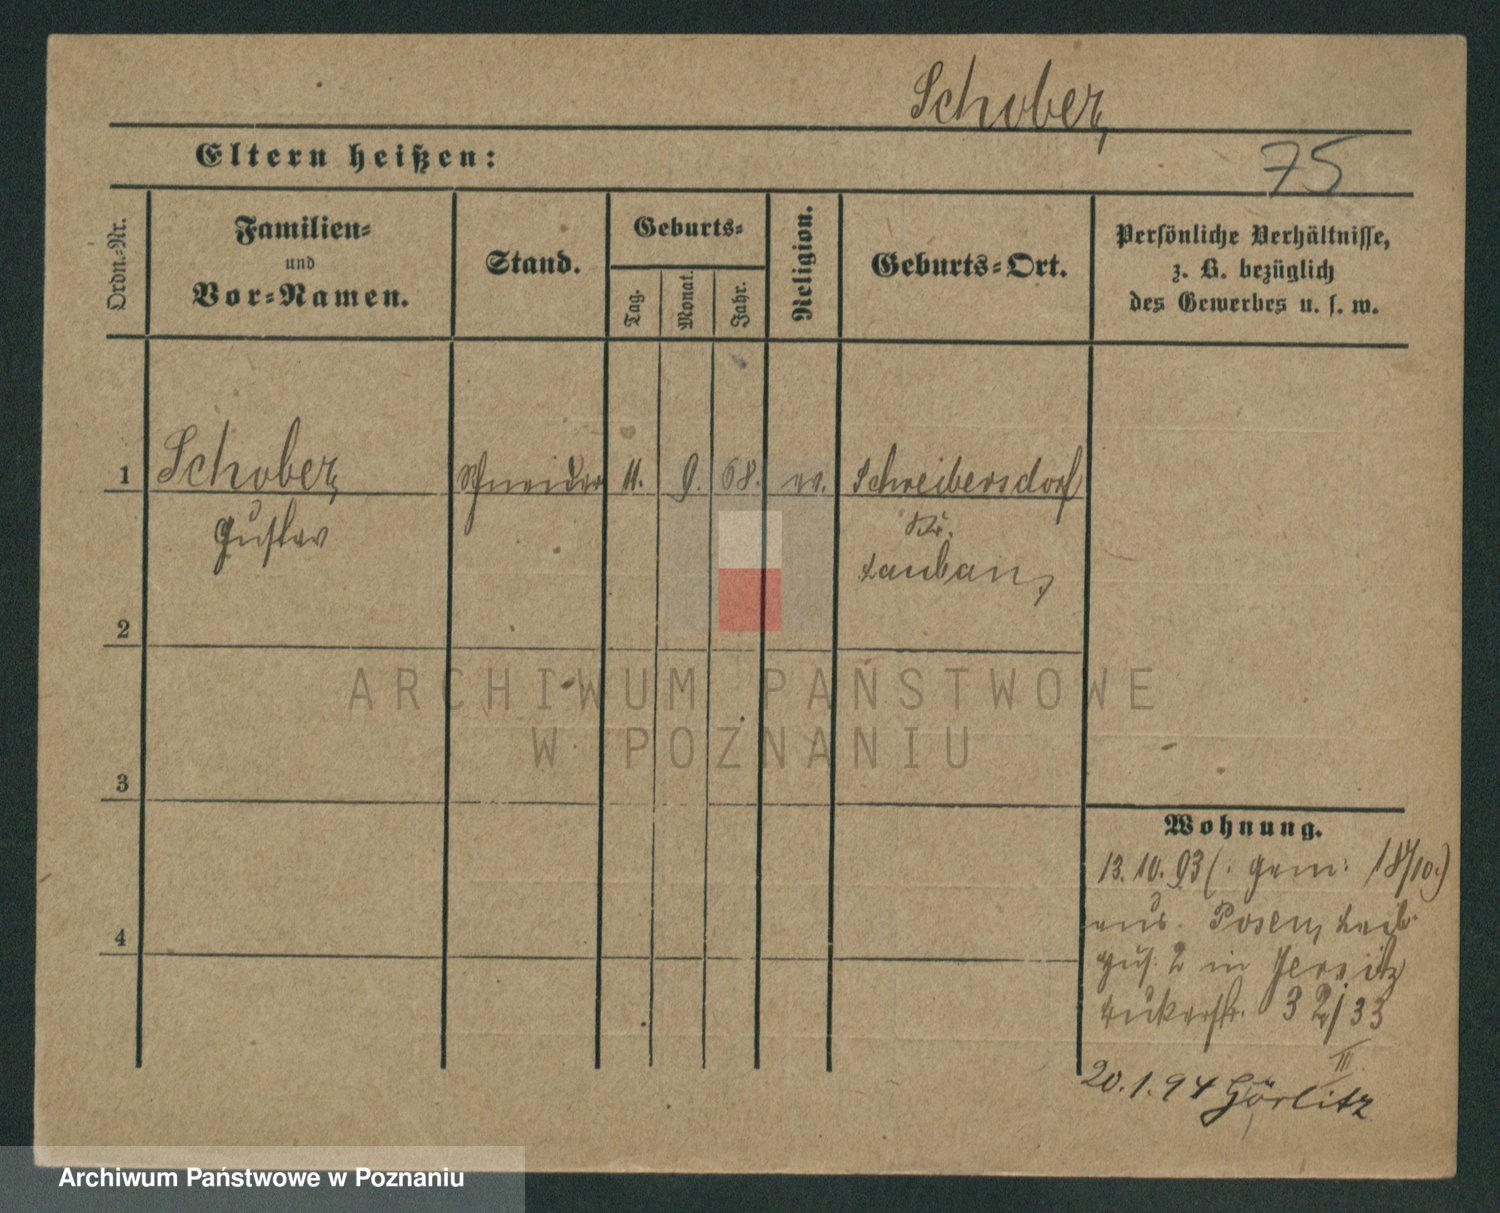 Schober,
Eltern heißen:
75
Ordn.-Nr.
Familien-
und
Vor-Namen.
Stand.
Geburts-
Tag.
Monat.
Jahr.
Religion.
Geburts-Ort.
Persönliche Verhältnisse,
z. B. bezüglich
des Gewerbes u. s. w.
1 Schober, Schneider 11. 9. 68. ev. Schreibersdorf
Gustav Kr.
Lauban,
2
ARCHIWUM PAŃSTWOWE
W POZNANIU
3
Wohnung.
13. 10. 93 (. gem: 18/10.)
aus. Posen,
4
2 in Jersitz
32/33
III.
20.1.94 Görlitz
Archiwum Państwowe w Poznaniu